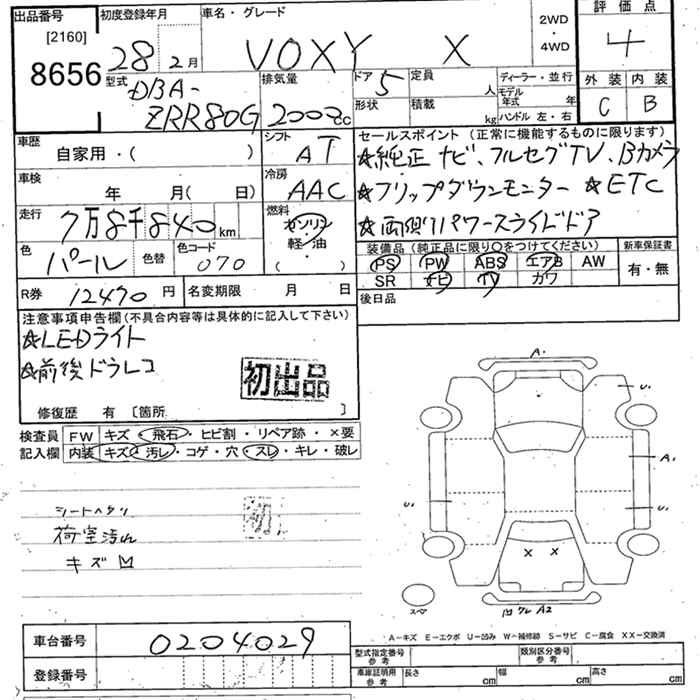 出品番号 初度登録年月 車名・グレード 評価点
[2160] 28 2月 VOXY X 2WD・4WD 4
8656 型式 DBA-ZRR80G 排気量 2000cc ドア 5 定員 人 ディーラー・並行 外装 内装
形状 積載 kg モデル年式 年 ハンドル 左・右 C B
車歴 自家用・( ) シフト AT
セールスポイント(正常に機能するものに限ります)
☆純正ナビ、フルセグTV、Bカメラ
車検 年 月( 日) 冷房 AAC
☆フリップダウンモニター ☆ETC
走行 7万8千840km 燃料 ガソリン 軽・油 ( )
☆両側パワースライドドア
色 パール 色替 色コード 070
装備品(純正品に限り○をつけてください) 新車保証書
PS PW ABS エアB AW 有・無
SR ナビ TV カワ
R券 12490円 名変期限 月 日
後日品
注意事項申告欄(不具合内容等は具体的に記入して下さい)
☆LEDライト
☆前後ドラレコ
初出品
修復歴 有 〔箇所 〕
検査員 FW キズ・飛石・ヒビ割・リペア跡・×要
記入欄 内装 キズ・汚レ・コゲ・穴・スレ・キレ・破レ
シートヘタリ
初
荷室汚れ
キズ
A. U. A. U. U.
× ×
凹 A2
スペア
A-キズ E-エクボ U-凹み W-補修跡 S-サビ C-腐食 XX-交換済
車台番号 0204029
型式指定番号 参考 類別区分番号 参考
登録番号
車庫証明用 参考 長さ cm 幅 cm 高さ cm